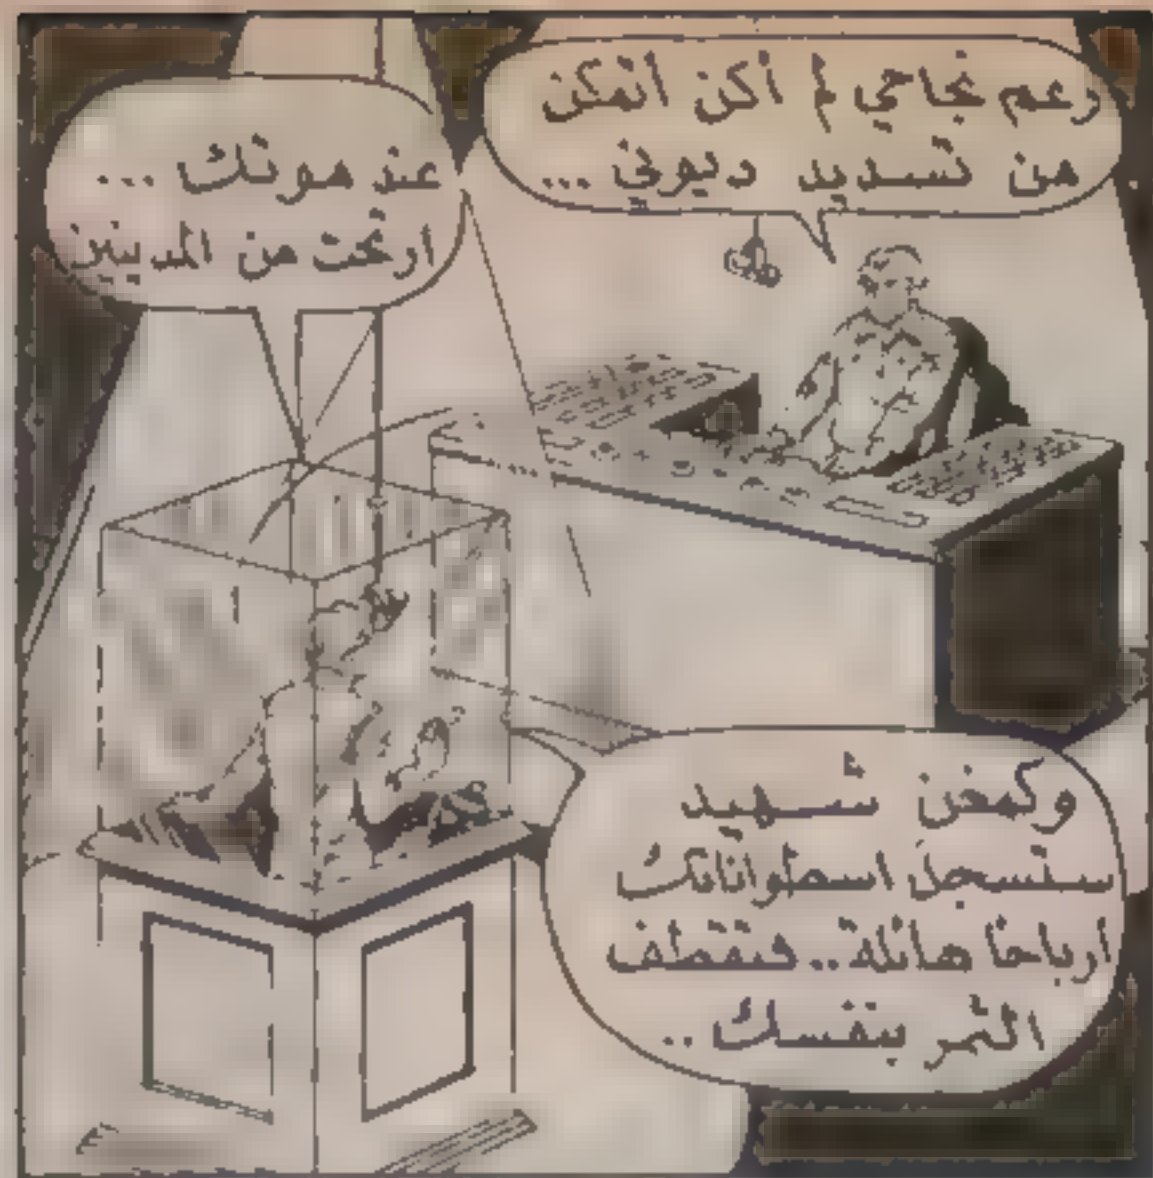 رغم نجاحي لم أكن أتمكن
من تسديد ديوني ...
عند موتك ...
ارتحت من المدينين
وكمغن شهيد
ستسجل اسطواناتك
أرباحا هائلة .. فتقطف
الثمر بنفسك ..